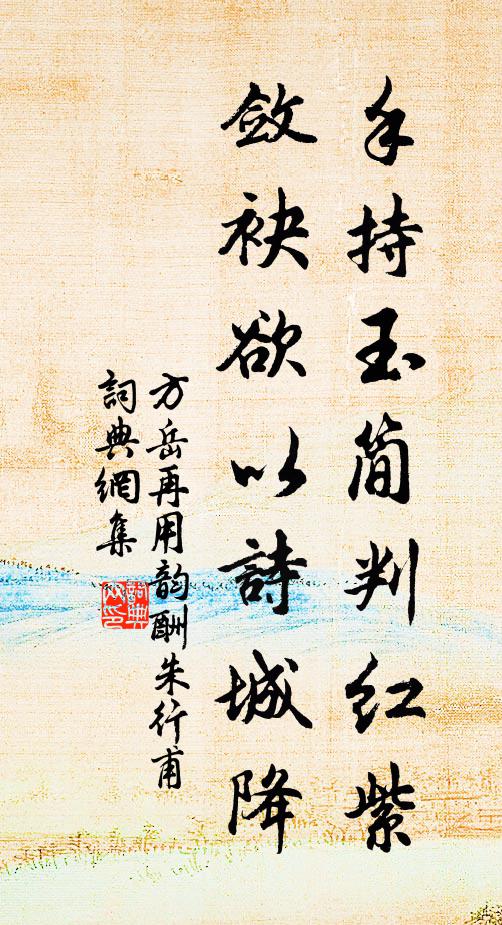 手持玉简判红紫
斂袂欲以詩城降
方岳再用韵酬朱行甫
詞典網集